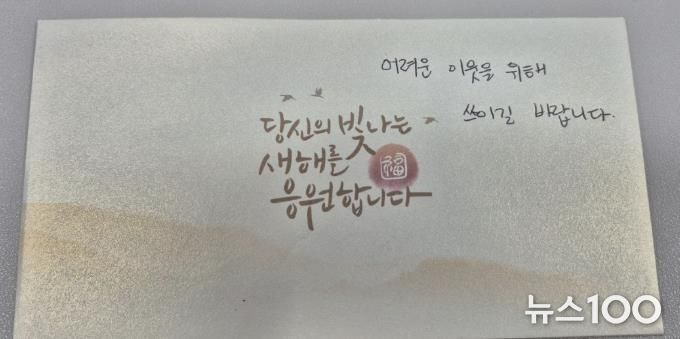 어려운 이웃을 위해
쓰이길 바랍니다.
당신의 빛나는
새해를
福
응원합니다
뉴스100